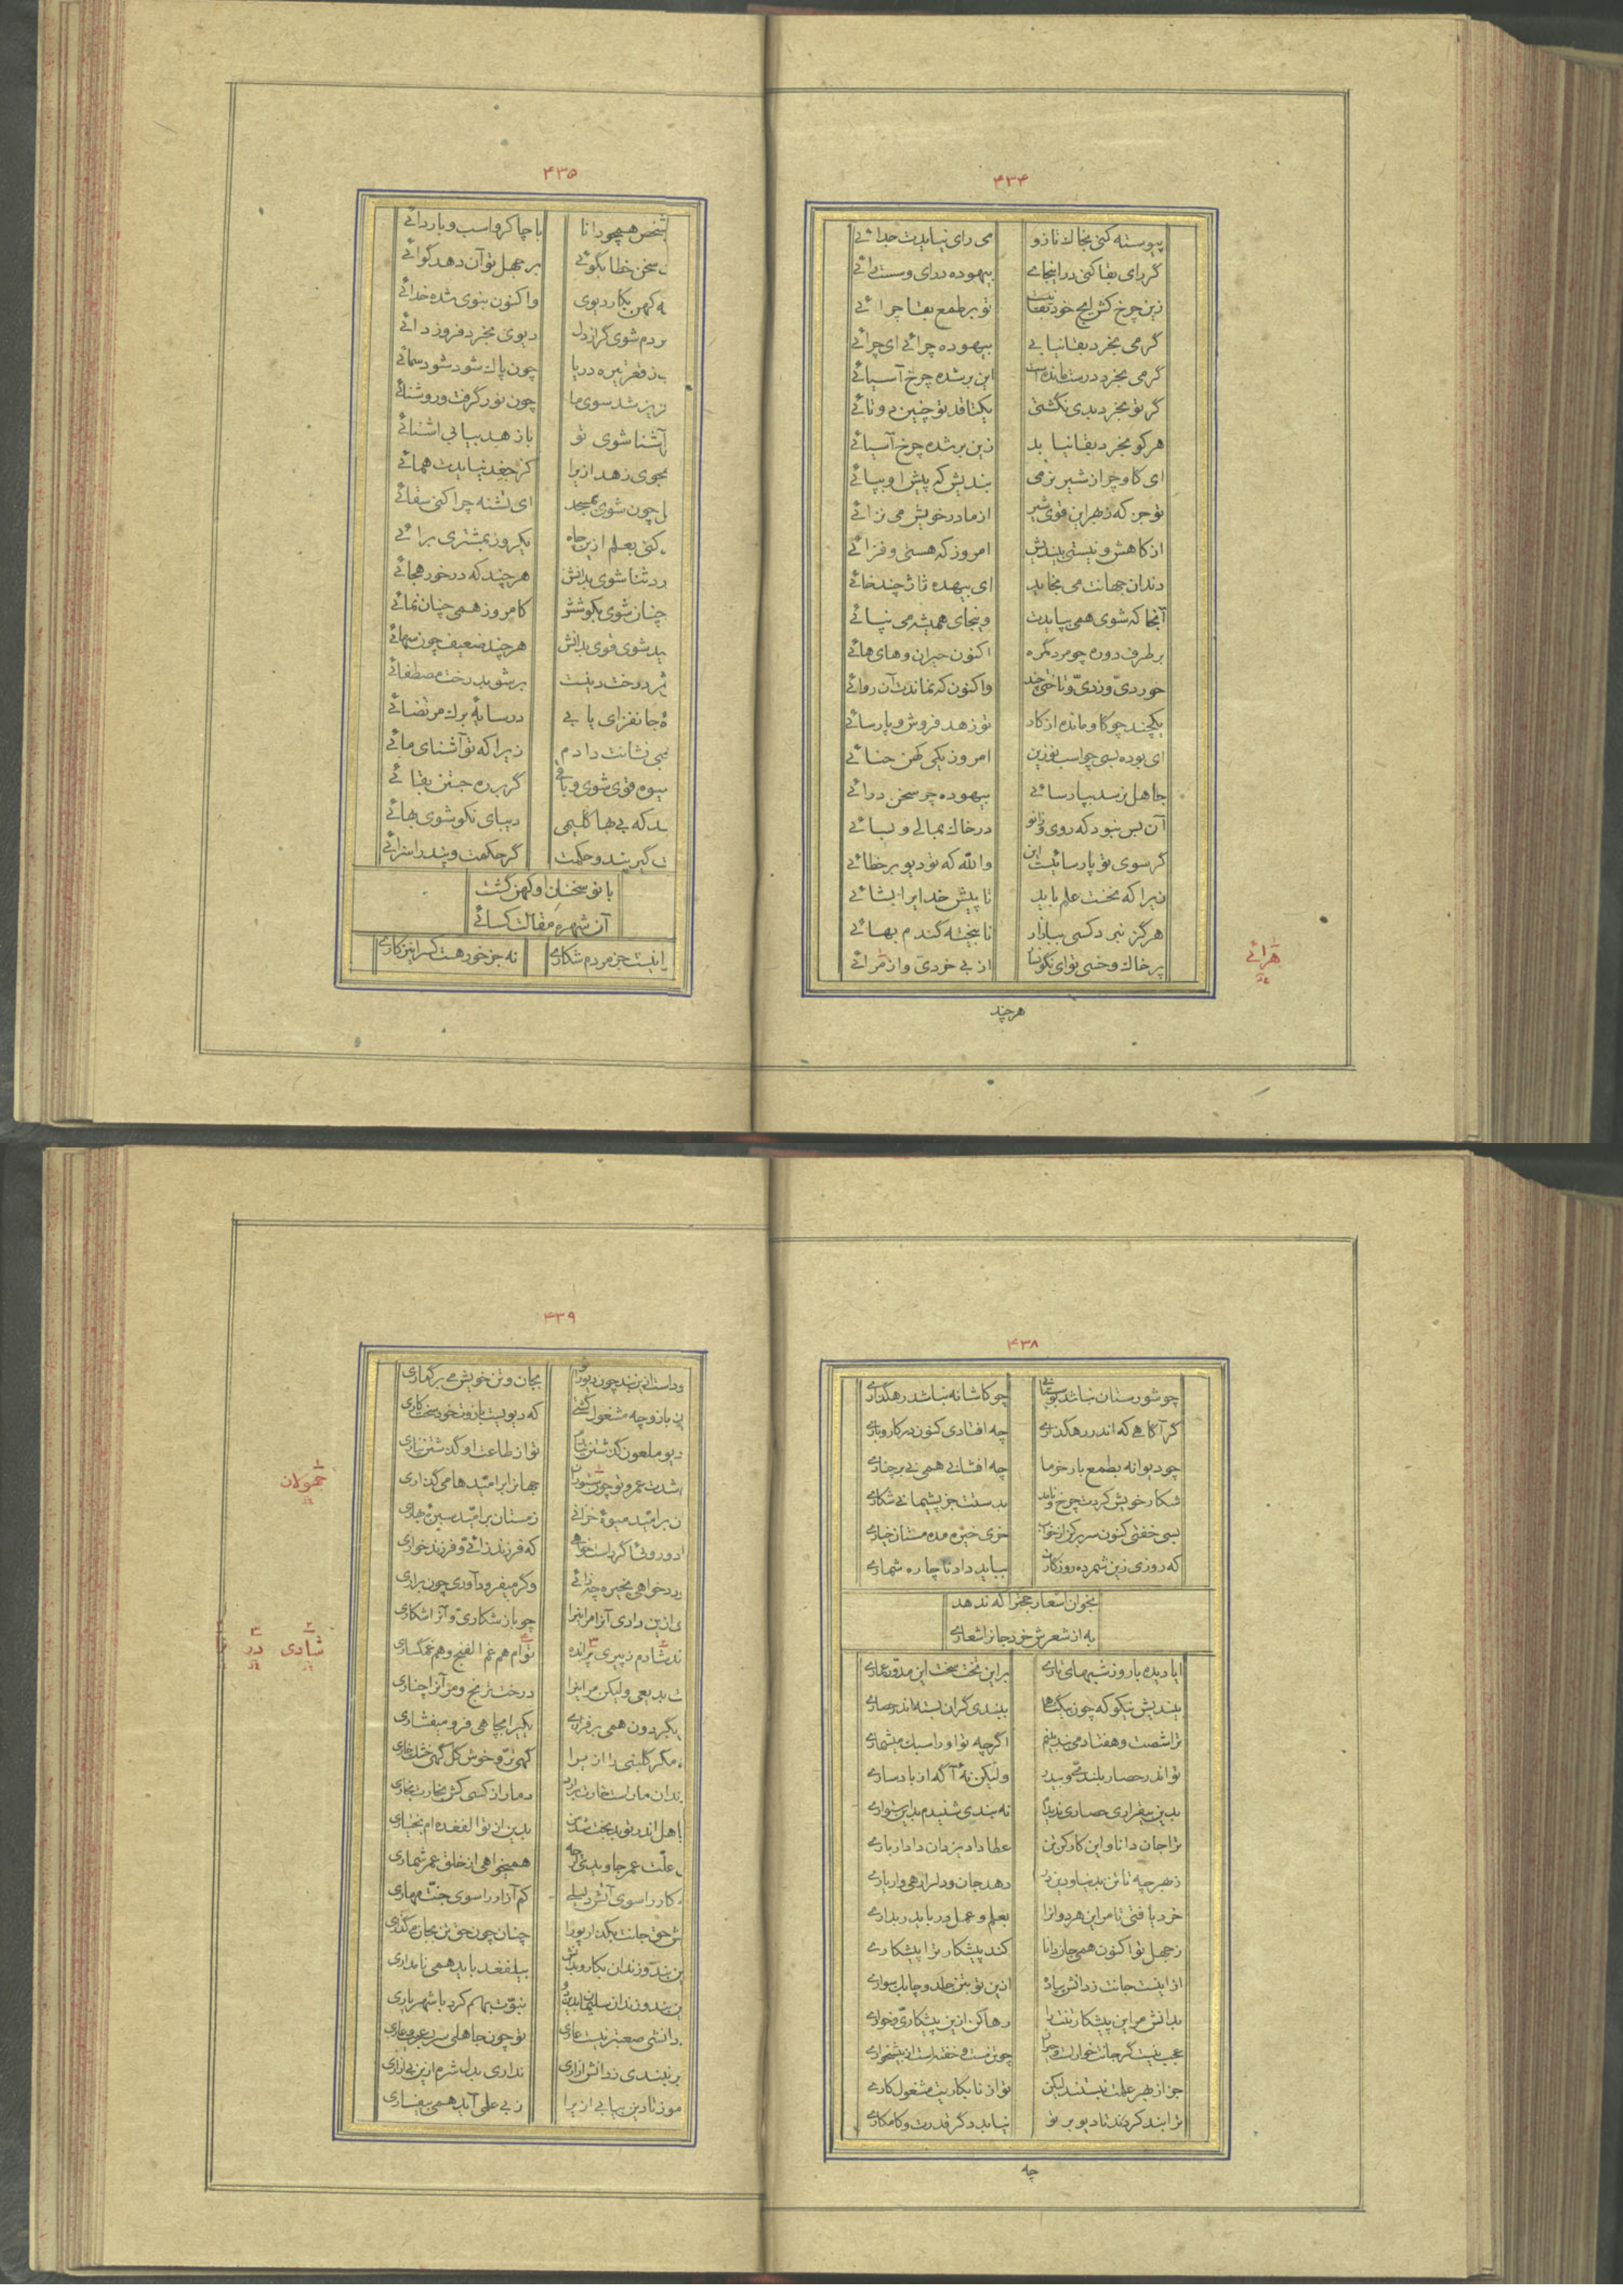 ۴۳۴
پیوسته کنی بخاك تا زو می رای نیایدت جدائے
گر رای بقا کنی در اینجاے بیهوده درای وسست رائے
زین چرخ کش ایچ خود بقا نیست تو بر طمع بقا چرائے
گر می بخرد بقا نیابے بیهوده چرائے ای چرائے
گر می بخرد درست مانده است این برشده چرخ آسیائے
گر تو بخرد بدی نگشتی یکتا قد تو چنین دوتائے
هرکو بخرد بقا نیابد زین برشده چرخ آسیائے
ای گاو چرا از شیر نرمی بندیش که پیش او بپائے
تو جز که زبهر این قوی شیر از مادر خویش می نزائے
از کاهش و نیستی بیندیش امروز که هستی و فزائے
دندان جهانت می بخاید ای بیهده تا ژ چند خائے
آنجا که شوی همی بپایدت وینجای همیشه می نپائے
بر طرف دوره چو مرد گمره اکنون حیران وهای هائے
خوردیّ وزدیّ وتاختی چند واکنون که نماندت آن روائے
یکچند چو گاو مانده از کار تو زهد فروش و پارسائے
ای بوده بسی چو اسب نوزین امروز یکی کهن حنائے
جاهل نرسد بپارسائے بیهوده چه سخن درائے
آن بس نبود که روی و زانو در خاك بمالے و بسائے
گر سوی تو پارسائیست این والله که تو دیو بر خطائے
زیرا که نخست علم باید تا پیش خدایرا بشائے
هرگز نبرد کسی ببازار نا بیخته گندم بهائے
پر خاك و خسی تو ای نگونسار از بے خردیّ واز مرائے
هرائے
هرچند
۴۳۵
شخص همچو دانا با چاکر واسب و با ردائے
سخن خطا بگوئے بر جهل تو آن دهد گوائے
کهن بکار دیوی واکنون بنوی شده خدائے
مردم شوی گر از دل دیوی بخرد فروزدائے
ز قعر تیره دریا چون پاك شود شود سمائے
نزیر شد سوی ما چون نور گرفت وروشنائے
آشنا شوی تو باز هد بیابی اشنائے
بجوی زهد ازیرا کز جغد نیایدت همائے
چون شوی بمسجد ای تشنه چرا کنی سقائے
کنی بعلم ازین چاه یکروز بمشتری برائے
ثنا شوی بدانش هرچند که در خور هجائے
چنان شوی بکوشش کامروز همی چنان نمائے
شوی قوی بدانش هرچند ضعیف چون سهائے
بر درخت دینست بر شو بدرخت مصطفائے
جانفزای یابے در سایهٔ برك مرتضائے
نشانت دادم زیرا که تو آشنای مائے
میوه قوی شوی و باقی گر بر ره جستن بقائے
که بے بها گلیمی دیبای نکو شوی بهائے
گیر پند و حکمت گر حکمت و پند را سزائے
با تو سخنان او کهن گشت
آن شهره مقالت کسائے
نیست جز مردم شکارے نه جز خور هست کس را نیز کارے
۴۳۸
چو شورستان نباشد بوستانے چو کاشانه نباشد رهگذارے
گر آگاهے که اندر رهگذرے چه افتادی کنون در کار وبارے
چو دیوانه بطمع بار خرما چه افشانے همی بے بر چنارے
شکار خویش کردت چرخ ونامد بدستت جز پشیمانے شکارے
بسی خفتی کنون سر برکن از خواب خری خیره مده مستان خیارے
که روزی زین شمرده روزگارت بباید داد ناچاره شمارے
بخوان اشعار حجّرا که ندهد
به از شعرش خرد جانرا شعارے
ایا دیده بسا روز شبهای تارے بر این تخت سخت این مدوّر عمارے
بیندیش نیکو که چون بیگناها ببندی گران بسته اندر حصارے
ترا شصت و هفتاد من بند بینم اگرچه تو او را سبك میشمارے
تو اندر حصار بلندیّ و بیدر ولیکن نۀ آگه از باد سارے
بدین بیقراری حصاری ندیدم نه بندی شنیدم بدین استوارے
ترا جان دانا و این کار کن تن عطا داد یزدان دادار بارے
زبهر چه تا تن بدنیا و دین در دهد جان ودلرا رهی وار یارے
خرد یافتی تا مر این هر دو انرا بعلم و عمل در بباید بدارے
زجهل تو اکنون همی جان دانا کند پیشکار ترا پیشکارے
از اینست جانت زدانش پیاده ازین تو بتن جلد و چابك سوارے
بدانش مر این پیشکار تنت را رها کن ازین پیشکاریّ و خوارے
عجب نیست گر جانت خوارست و حیران چو تن مست و خفته است از بیشخوارے
جز از بهر علمت نبستند لیکن تو از نابکاریت مشغول کارے
ترا بند کردند تا دیو بر تو نیابد دگر قدرت و کامکارے
چه
۴۳۹
وداست ازین بند چون دیو را بجان وتن خویش مے بر گماری
بازو چه مشغول گشتے که دیویست بازوت خود سخت کاری
دیو ملعون گذشتن نشاید تو از طاعت او گذشتن نیاری
شدت عمر وتو چون ستوران جهانرا بر امّید ها میگذاری
بر امّید میوهٔ خزانے زمستان بر امّید سبزهٔ بهاری
دوروئے گر راست خواهے که فرزند زائے و فرزند خواری
خواهی بخیره چه زائے وگر میفرود آوری چون براری
ازین داری آنرا مر اینرا چو باز شکاریّ و آنرا شکاری
شادم زپیری نرانده توام هم غم الفنج وهم غمگساری
بدیعی ولیکن مر اینرا درخت ترنج و مر آنرا چناری
یکیرا بگردون همی بر فرازی یکیرا بچاهی فرو میفشاری
مگر گلبنی زانکه مرا گهی ترّ و خوش گل گهی خشك خاری
زندان مار است دمار از کسی کش بخارت بخاری
جاهل اندر تو بدبخت شد بدین از تو الفغده ام بختیاری
علّت عمر جاوید همیخواهی از خلق عمر شماری
کار را سوی آتش دلیلے کم آزار را سوی جنّت مهاری
حق جانت بگذار پورا چنان چون حق تن بجان میگذاری
بند و زندان بکار و بدانش بیلفغد باید همی نامداری
بند و زندان سلیمان بدین نبوّت بهم کرد با شهریاری
دانشی صعبتر نیست عاری تو چون جاهلی سر بسر عیب و عاری
بر نبندی زدانش ازاری نداری بدل شرم ازین بی ازاری
موز تا دین بیابے ازیرا ز بے علمی آید همی بیفساری
حمولان
شادی در